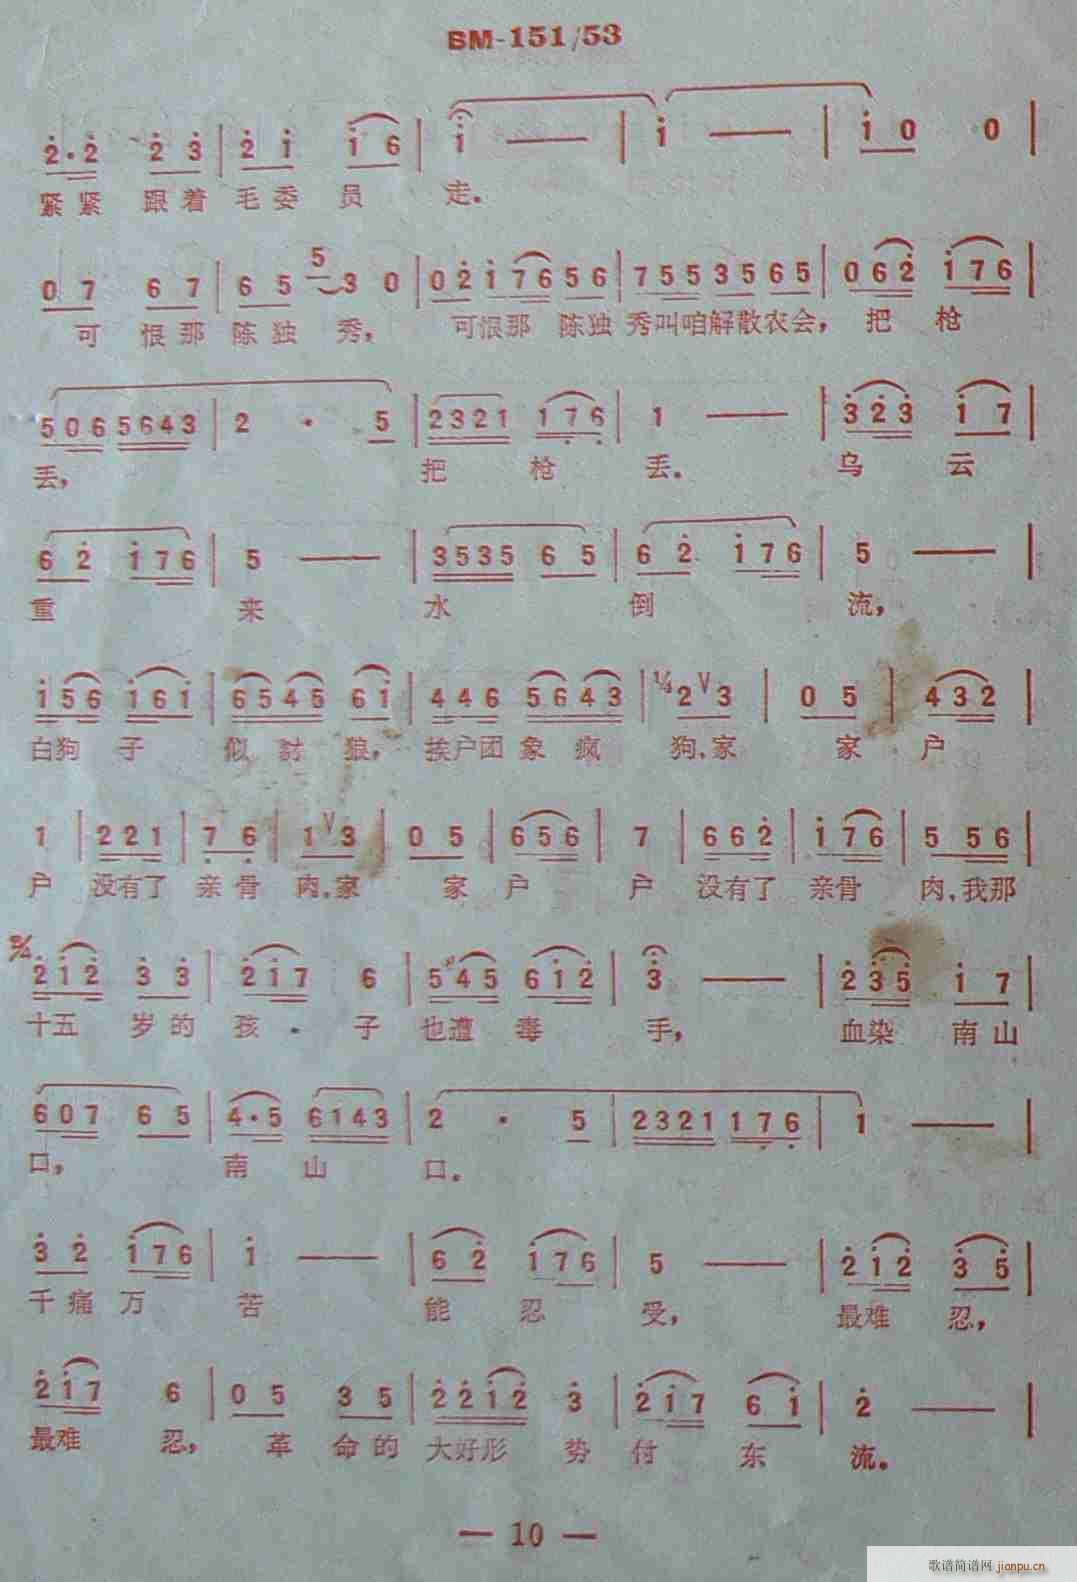 BM-151/53
2·2 2 3 | 2 1 1 6 | 1 — | 1 — | 1 0 0 |
紧紧 跟着 毛委 员 走。
0 7 6 7 | 6 5 5 3 0 | 0 2 1 7 6 5 6 | 7 5 5 3 5 6 5 | 0 6 2 1 7 6 |
可 恨那 陈独 秀， 可恨那 陈独 秀叫咱解散农会，把 枪
5 0 6 5 6 4 3 | 2 · 5 | 2 3 2 1 1 7 6 | 1 — | 3 2 3 1 7 |
丢， 把 枪 丢。 乌 云
6 2 1 7 6 | 5 — | 3 5 3 5 6 5 | 6 2 1 7 6 | 5 — |
重 来 水 倒 流，
1 5 6 1 6 1 | 6 5 4 5 6 1 | 4 4 6 5 6 4 3 | 1/4 2 V 3 | 0 5 | 4 3 2 |
白狗 子 似 豺 狼，挨户团 象 疯 狗，家 家 户
1 | 2 2 1 | 7 6 | 1 V 3 | 0 5 | 6 5 6 | 7 | 6 6 2 | 1 7 6 | 5 5 6 |
户 没有了 亲骨 肉，家 家 户 户 没有了 亲骨 肉，我那
2/4 2 1 2 3 3 | 2 1 7 6 | 5 4 5 6 1 2 | 3 — | 2 3 5 1 7 |
十五 岁的 孩 子 也遭 毒 手， 血染 南山
6 0 7 6 5 | 4·5 6 1 4 3 | 2 · 5 | 2 3 2 1 1 7 6 | 1 — |
口， 南 山 口。
3 2 1 7 6 | 1 — | 6 2 1 7 6 | 5 — | 2 1 2 3 5 |
千痛万 苦 能 忍 受， 最难 忍，
2 1 7 6 | 0 5 3 5 | 2 2 1 2 3 | 2 1 7 6 1 | 2 — |
最难 忍， 革 命的 大好形 势 付 东 流。
— 10 —
歌谱简谱网 jianpu.cn